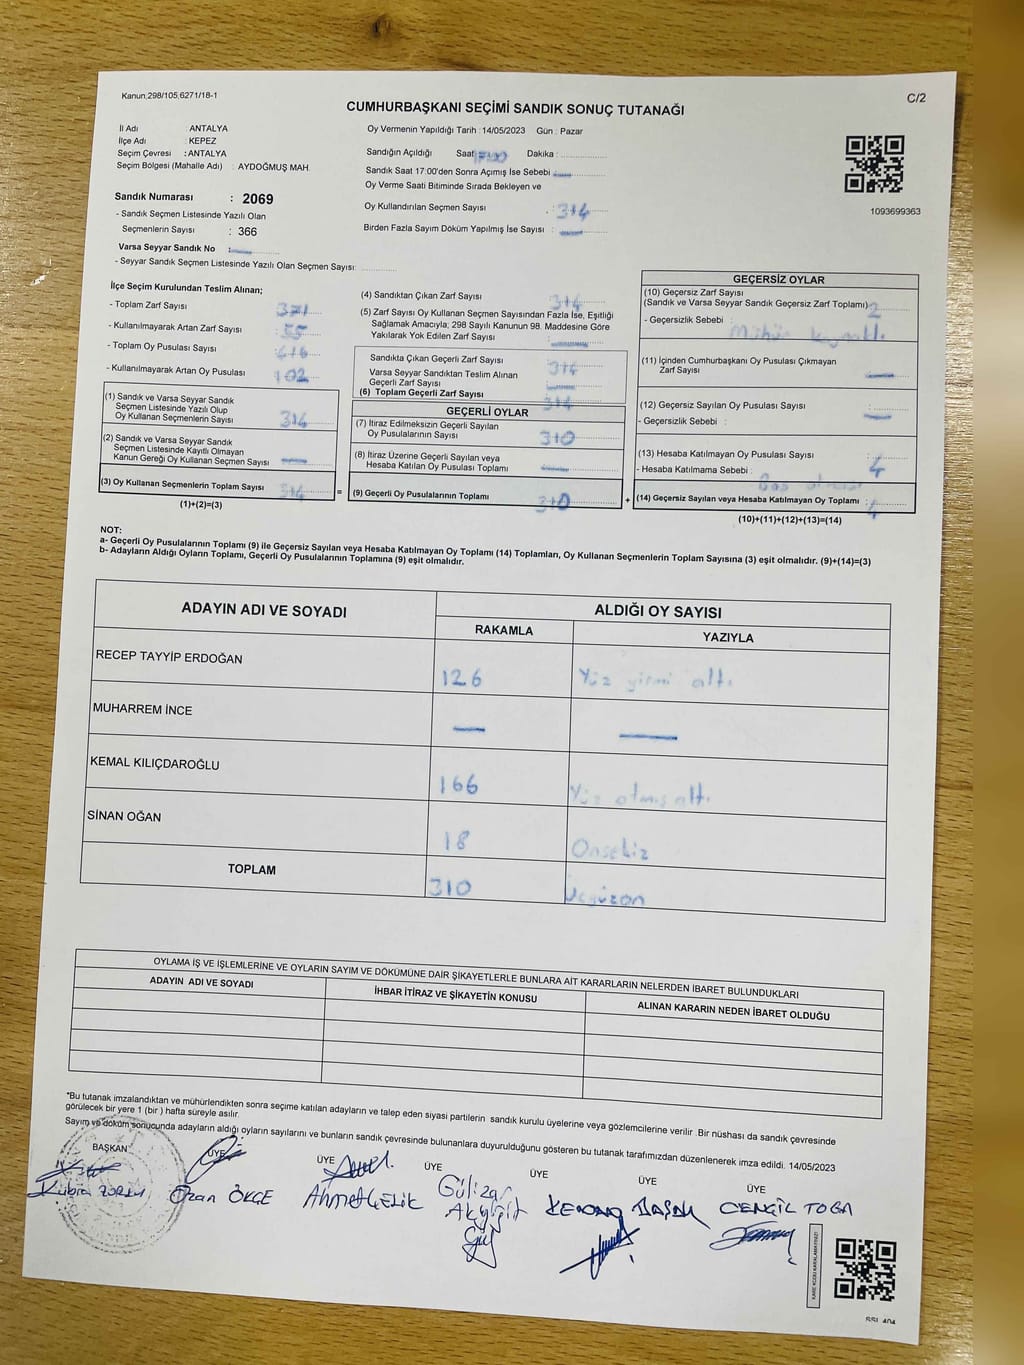 Kanun,298/105,6271/18-1
C/2
CUMHURBAŞKANI SEÇİMİ SANDIK SONUÇ TUTANAĞI
İl Adı : ANTALYA
İlçe Adı : KEPEZ
Seçim Çevresi : ANTALYA
Seçim Bölgesi (Mahalle Adı) : AYDOĞMUŞ MAH.
Oy Vermenin Yapıldığı Tarih : 14/05/2023 Gün : Pazar
Sandığın Açıldığı Saat 17:00 Dakika :
Sandık Saat 17:00'den Sonra Açımış İse Sebebi
Oy Verme Saati Bitiminde Sırada Bekleyen ve
Oy Kullandırılan Seçmen Sayısı : 314
Birden Fazla Sayım Döküm Yapılmış İse Sayısı : —
1093699363
Sandık Numarası : 2069
- Sandık Seçmen Listesinde Yazılı Olan
Seçmenlerin Sayısı : 366
Varsa Seyyar Sandık No : —
- Seyyar Sandık Seçmen Listesinde Yazılı Olan Seçmen Sayısı:
İlçe Seçim Kurulundan Teslim Alınan;
- Toplam Zarf Sayısı 371
- Kullanılmayarak Artan Zarf Sayısı 55
- Toplam Oy Pusulası Sayısı 416
- Kullanılmayarak Artan Oy Pusulası 102
(1) Sandık ve Varsa Seyyar Sandık
Seçmen Listesinde Yazılı Olup
Oy Kullanan Seçmenlerin Sayısı 314
(2) Sandık ve Varsa Seyyar Sandık
Seçmen Listesinde Kayıtlı Olmayan
Kanun Gereği Oy Kullanan Seçmen Sayısı —
(3) Oy Kullanan Seçmenlerin Toplam Sayısı 314
(1)+(2)=(3)
(4) Sandıktan Çıkan Zarf Sayısı 314
(5) Zarf Sayısı Oy Kullanan Seçmen Sayısından Fazla İse, Eşitliği
Sağlamak Amacıyla; 298 Sayılı Kanunun 98. Maddesine Göre
Yakılarak Yok Edilen Zarf Sayısı —
Sandıkta Çıkan Geçerli Zarf Sayısı 314
Varsa Seyyar Sandıktan Teslim Alınan
Geçerli Zarf Sayısı —
(6) Toplam Geçerli Zarf Sayısı 314
GEÇERLİ OYLAR
(7) İtiraz Edilmeksizin Geçerli Sayılan
Oy Pusulalarının Sayısı 310
(8) İtiraz Üzerine Geçerli Sayılan veya
Hesaba Katılan Oy Pusulası Toplamı —
= (9) Geçerli Oy Pusulalarının Toplamı 310
GEÇERSİZ OYLAR
(10) Geçersiz Zarf Sayısı
(Sandık ve Varsa Seyyar Sandık Geçersiz Zarf Toplamı) 2
- Geçersizlik Sebebi : Mühür
(11) İçinden Cumhurbaşkanı Oy Pusulası Çıkmayan
Zarf Sayısı —
(12) Geçersiz Sayılan Oy Pusulası Sayısı —
- Geçersizlik Sebebi :
(13) Hesaba Katılmayan Oy Pusulası Sayısı : 4
- Hesaba Katılmama Sebebi :
+ (14) Geçersiz Sayılan veya Hesaba Katılmayan Oy Toplamı : 4
(10)+(11)+(12)+(13)=(14)
NOT:
a- Geçerli Oy Pusulalarının Toplamı (9) ile Geçersiz Sayılan veya Hesaba Katılmayan Oy Toplamı (14) Toplamları, Oy Kullanan Seçmenlerin Toplam Sayısına (3) eşit olmalıdır. (9)+(14)=(3)
b- Adayların Aldığı Oyların Toplamı, Geçerli Oy Pusulalarının Toplamına (9) eşit olmalıdır.
ADAYIN ADI VE SOYADI ALDIĞI OY SAYISI
RAKAMLA YAZIYLA
RECEP TAYYİP ERDOĞAN 126 Yüz yirmi altı
MUHARREM İNCE — —
KEMAL KILIÇDAROĞLU 166 Yüz atmış altı
SİNAN OĞAN 18 Onsekiz
TOPLAM 310 Üçyüzon
OYLAMA İŞ VE İŞLEMLERİNE VE OYLARIN SAYIM VE DÖKÜMÜNE DAİR ŞİKAYETLERLE BUNLARA AİT KARARLARIN NELERDEN İBARET BULUNDUKLARI
ADAYIN ADI VE SOYADI İHBAR İTİRAZ VE ŞİKAYETİN KONUSU ALINAN KARARIN NEDEN İBARET OLDUĞU
*Bu tutanak imzalandıktan ve mühürlendikten sonra seçime katılan adayların ve talep eden siyasi partilerin sandık kurulu üyelerine veya gözlemcilerine verilir .Bir nüshası da sandık çevresinde
görülecek bir yere 1 (bir ) hafta süreyle asılır.
Sayım ve döküm sonucunda adayların aldığı oyların sayılarını ve bunların sandık çevresinde bulunanlara duyurulduğunu gösteren bu tutanak tarafımızdan düzenlenerek imza edildi. 14/05/2023
BAŞKAN ÜYE ÜYE ÜYE ÜYE ÜYE ÜYE
Kübra Ozan ÖKCE Ahmet ÇELİK Gülizar Akyiğit KENAN BAŞAK CENGİZ TOGA
KARE KODU KARALAMAYINIZ!